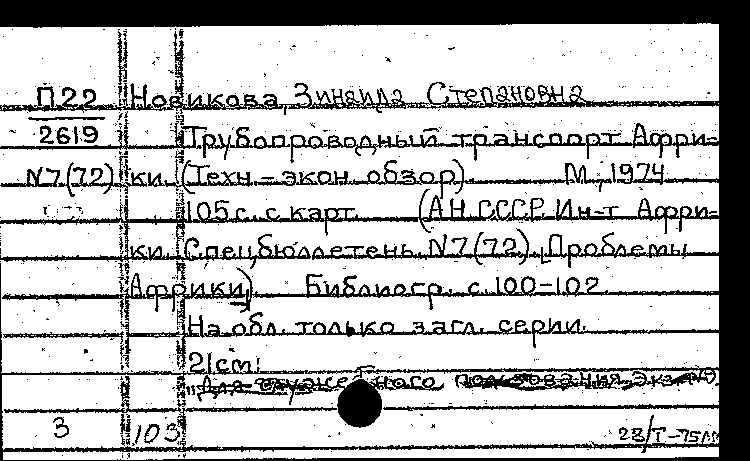 П22 Новикова, Зинаида Степановна
2619 Трубопроводный транспорт Афри-
N7(72) ки. (Техн.-экон. обзор). М., 1974.
105 с. с карт. (АН СССР. Ин-т Афри-
ки. Спец. бюллетень N7(72). Проблемы
Африки). Библиогр. с. 100-102.
На обл. только загл. серии.
21 см.
"Для служебного пользования, экз.
3 103 28/I-75